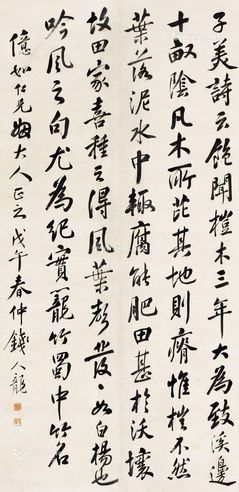 子美詩云飽聞榿木三年大為致溪邊
十畝陰凡木所芘其地則瘠惟榿不然
葉落泥水中輙腐能肥田甚於沃壤
故田家喜種之得風葉聲發發如白楊也
吟風之句尤為紀實籠竹蜀中竹名
億如仁兄姻大人正之戊午春仲錢人龍